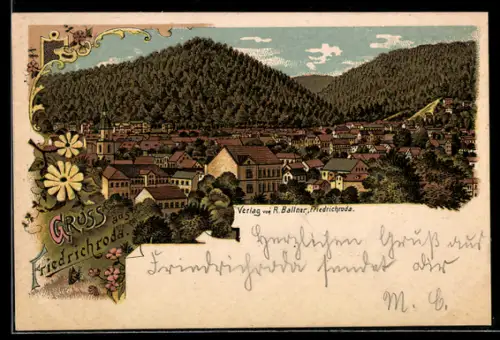 Gruss aus
Friedrichroda.
Verlag von R. Ballner, Friedrichroda.
Herzlichen Gruß aus
Friedrichroda sendet dir
M. C.